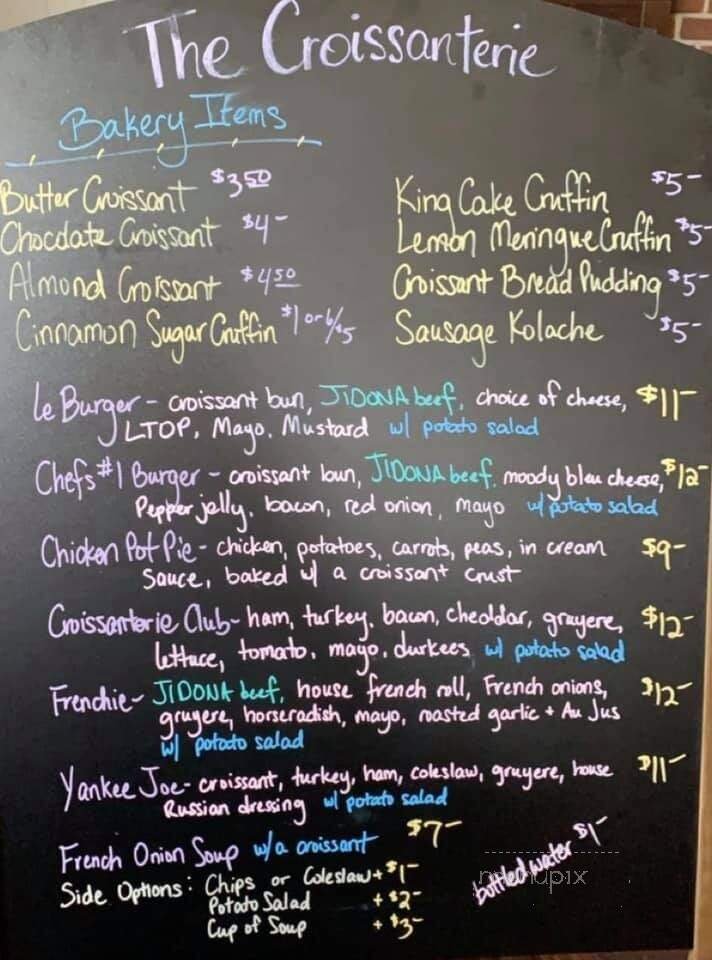 The Croissanterie
Bakery Items
Butter Croissant $3.50
Chocolate Croissant $4-
Almond Croissant $4.50
Cinnamon Sugar Cruffin $1 or 6/$5
King Cake Cruffin $5-
Lemon Meringue Cruffin $5-
Croissant Bread Pudding $5-
Sausage Kolache $5-
Le Burger - croissant bun, JIDONA beef, choice of cheese, $11-
LTOP, Mayo, Mustard w/ potato salad
Chefs #1 Burger - croissant bun, JIDONA beef, moody bleu cheese, $12-
Pepper jelly, bacon, red onion, mayo w/ potato salad
Chicken Pot Pie - chicken, potatoes, carrots, peas, in cream $9-
Sauce, baked w/ a croissant crust
Croissanterie Club - ham, turkey, bacon, cheddar, gruyere, $12-
lettuce, tomato, mayo, durkees w/ potato salad
Frenchie - JIDONA beef, house french roll, French onions, $12-
gruyere, horseradish, mayo, roasted garlic + Au Jus
w/ potato salad
Yankee Joe - croissant, turkey, ham, coleslaw, gruyere, house $11-
Russian dressing w/ potato salad
French Onion Soup w/a croissant $7-
Side Options: Chips or Coleslaw + $1-
Potato Salad + $2-
Cup of Soup + $3-
bottled water $1-
menupix